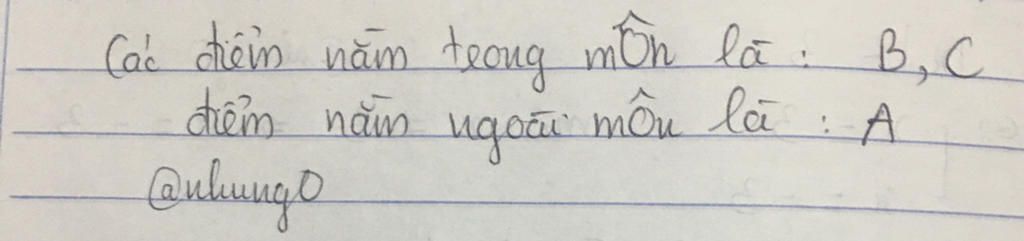 Các điểm nằm trong môn là : B, C
điểm nằm ngoài môn là : A
@nhung0